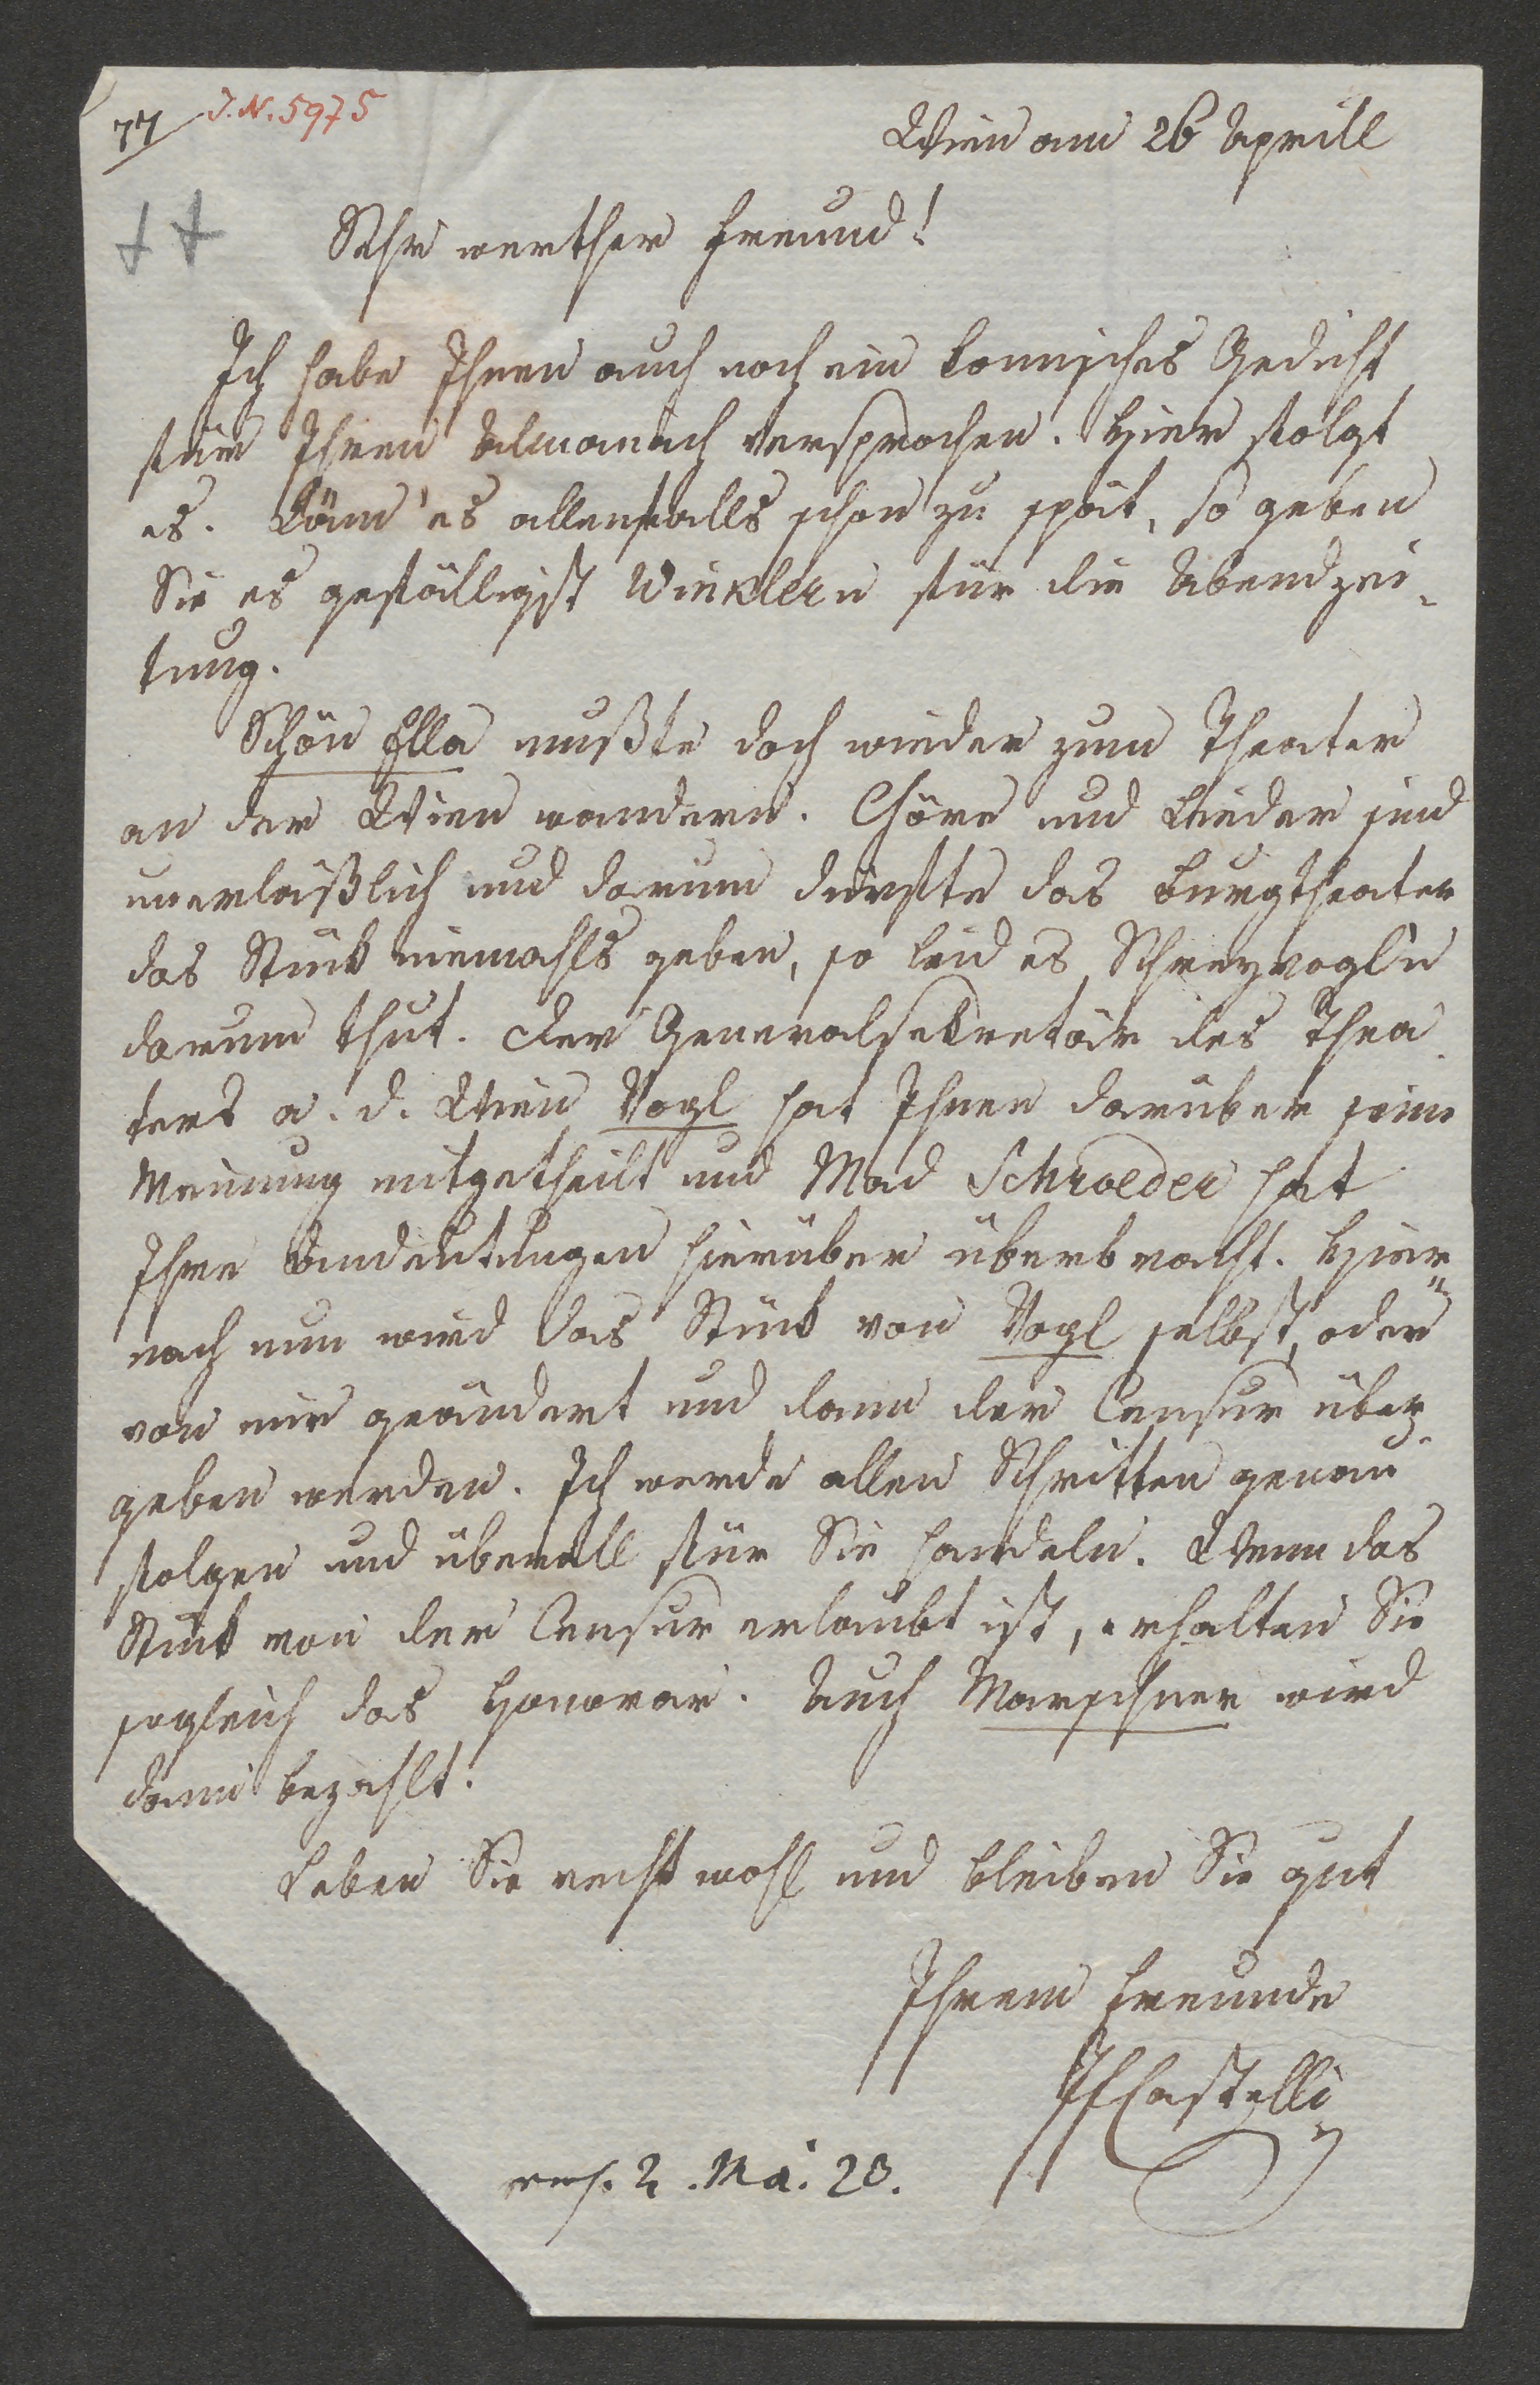 77 J.N. 5975
Wien am 26 Aprill
Sehr werther Freund!
Ich habe Ihnen auch noch ein komisches Gedicht
für Ihren Almanach versprochen. Hier folgt
es. Käm' es allenfalls schon zu spät, so geben
Sie es gefälligst Winklern für die Abendzei-
tung.
Schön Ella mußte doch wieder zum Theater
an der Wien wandern. Chöre und Lieder sind
unerläßlich und darum dürfte das Burgtheater
das Stück niemahls geben, so leid es Schreyvogl'n
darum thut. Der Generalsekretär des Thea-
ters a. d. Wien Vogl hat Ihnen darüber seine
Meinung mitgetheilt und Mad Schroeder hat
Ihre Andeutungen hierüber überbracht. Hier-
nach nun wird das Stück von Vogl selbst, oder
von mir geändert und dann der Censur über-
geben werden. Ich werde allen Schritten genau
folgen und überall für Sie handeln. Wenn das
Stück von der Censur erlaubt ist, erhalten Sie
sogleich das Honorar. Auch Marschner wird
dann bezahlt.
Leben Sie recht wohl und bleiben Sie gut
Ihrem Freunde
IFCastelli
2. Mai. 23.